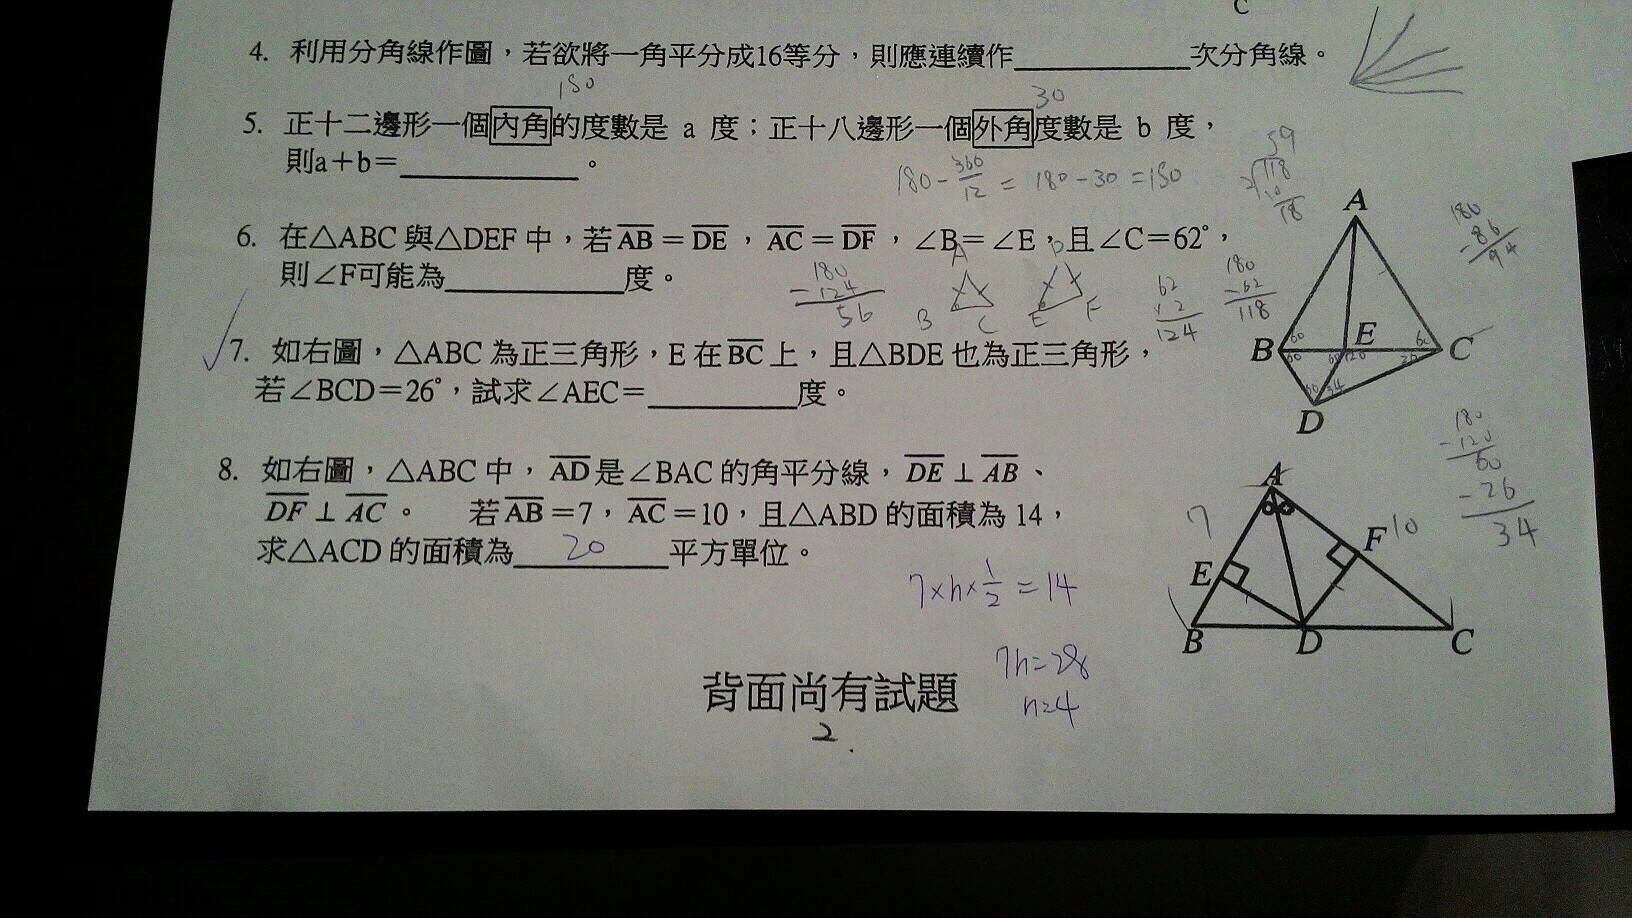 C
4. 利用分角線作圖，若欲將一角平分成16等分，則應連續作____________次分角線。
150
30
5. 正十二邊形一個內角的度數是 a 度；正十八邊形一個外角度數是 b 度，
則a＋b＝____________。
180 - 360/12 = 180 - 30 = 150
59
2 118
10
18
6. 在△ABC 與△DEF 中，若AB＝DE，AC＝DF，∠B＝∠E，且∠C＝62°，
則∠F可能為____________度。
180
- 124
56
A
B C
D
E F
62
× 2
124
180
- 62
118
7. 如右圖，△ABC 為正三角形，E 在BC上，且△BDE 也為正三角形，
若∠BCD＝26°，試求∠AEC＝__________度。
A
B E C
D
60 60
60 60 120 26
60 34
180
- 86
94
180
- 120
60
- 26
34
8. 如右圖，△ABC 中，AD是∠BAC 的角平分線，DE⊥AB、
DF⊥AC。 若AB＝7，AC＝10，且△ABD 的面積為 14，
求△ACD 的面積為 20 平方單位。
7×h×1/2 = 14
7h=28
h=4
A
7
F 10
E
B D C
背面尚有試題
2